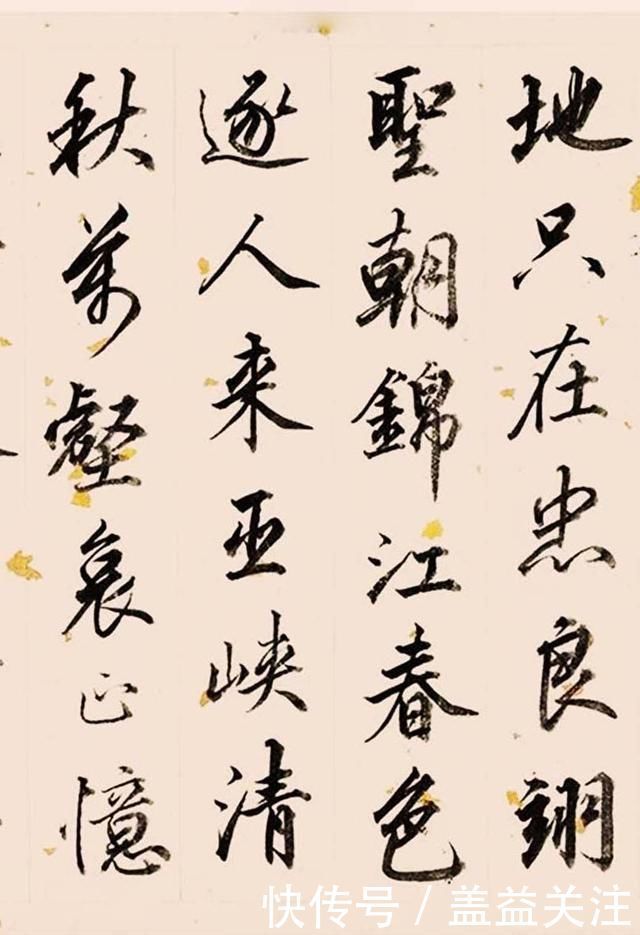 地只在忠良翊
聖朝錦江春色
逐人来巫峽清
秋萬壑哀正憶
快传号 / 盖益关注